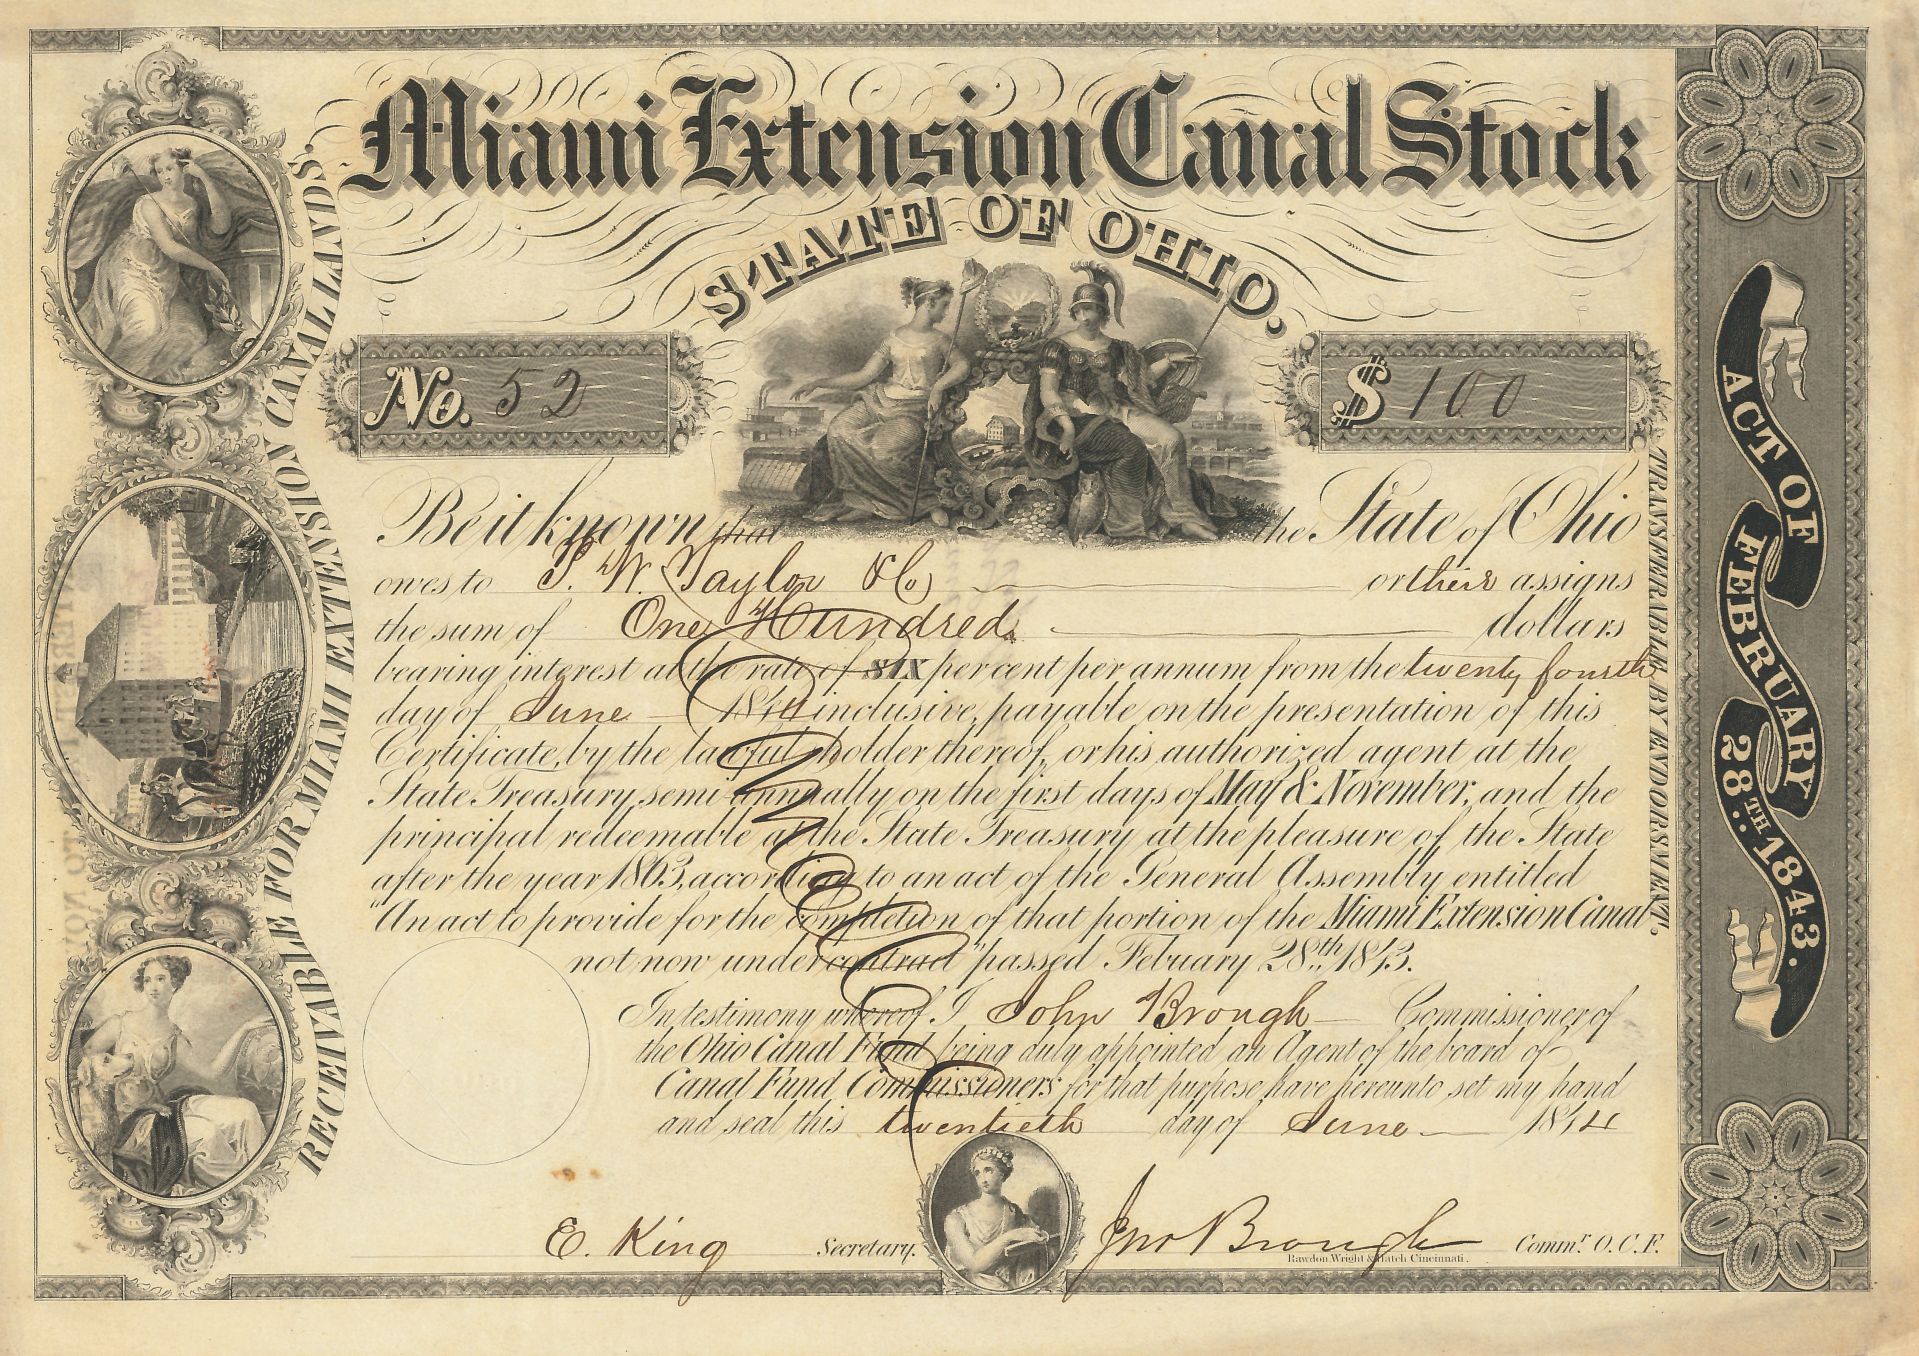 Miami Extension Canal Stock
STATE OF OHIO.
No. 52
$ 100
Be it known that the State of Ohio
owes to T. W. Taylor & Co or their assigns
the sum of One Hundred dollars
bearing interest at the rate of SIX per cent per annum from the twenty fourth
day of June 1844 inclusive, payable on the presentation of this
Certificate, by the lawful holder thereof, or his authorized agent at the
State Treasury, semi-annually on the first days of May & November, and the
principal redeemable at the State Treasury at the pleasure of the State
after the year 1863, according to an act of the General Assembly entitled
"An act to provide for the completion of that portion of the Miami Extension Canal
not now under contract" passed Febuary 28th, 1843.
In testimony whereof I John Brough Commissioner of
the Ohio Canal Fund being duly appointed an Agent of the board of
Canal Fund Commissioners for that purpose have hereunto set my hand
and seal this twentieth day of June 1844
E. King Secretary.
Jno Brough Commr. O.C.F.
Rawdon Wright & Hatch Cincinnati.
RECEIVABLE FOR MIAMI EXTENSION CANAL LANDS.
TRANSFERRABLE BY ENDORSMENT.
ACT OF FEBRUARY 28.TH 1843.